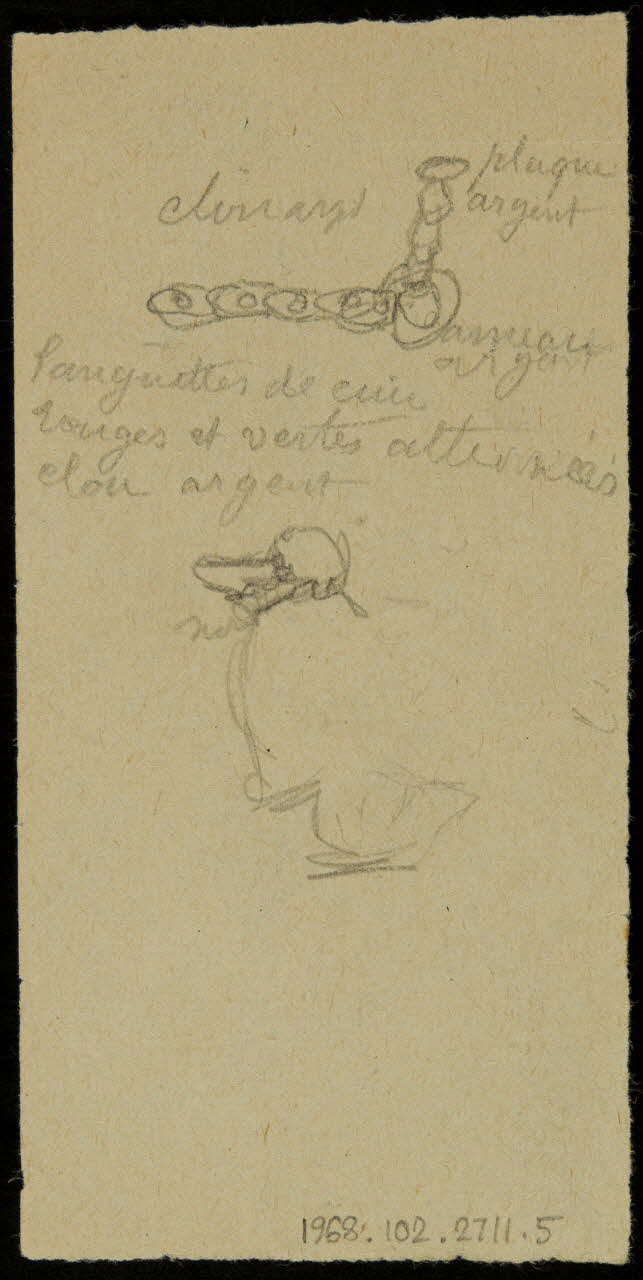 plaque
argent
anneau
argent
languettes de cuir
rouges et vertes alternées
clou argent
1968.102.2711.5